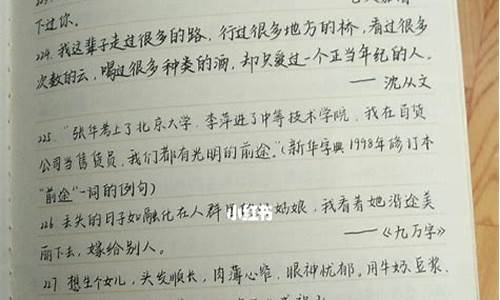 下过你。
224. 我这辈子走过很多的路，行过很多地方的桥，看过很多
次数的云，喝过很多种类的酒，却只爱过一个正当年纪的人。
—— 沈从文
225. “张华考上了北京大学，李萍进了中等技术学院，我在百货
公司当售货员，我们都有光明的前途。”（新华字典1998年修订本
“前途”一词的例句）
226 丢失的日子如融化在人群里的姑娘，我看着她沿途美
丽下去，嫁给别人。
——《九万字》
227 想生个女儿，头发顺长，肉薄心缩，眼神忧郁。用牛奶、豆浆、
小红书